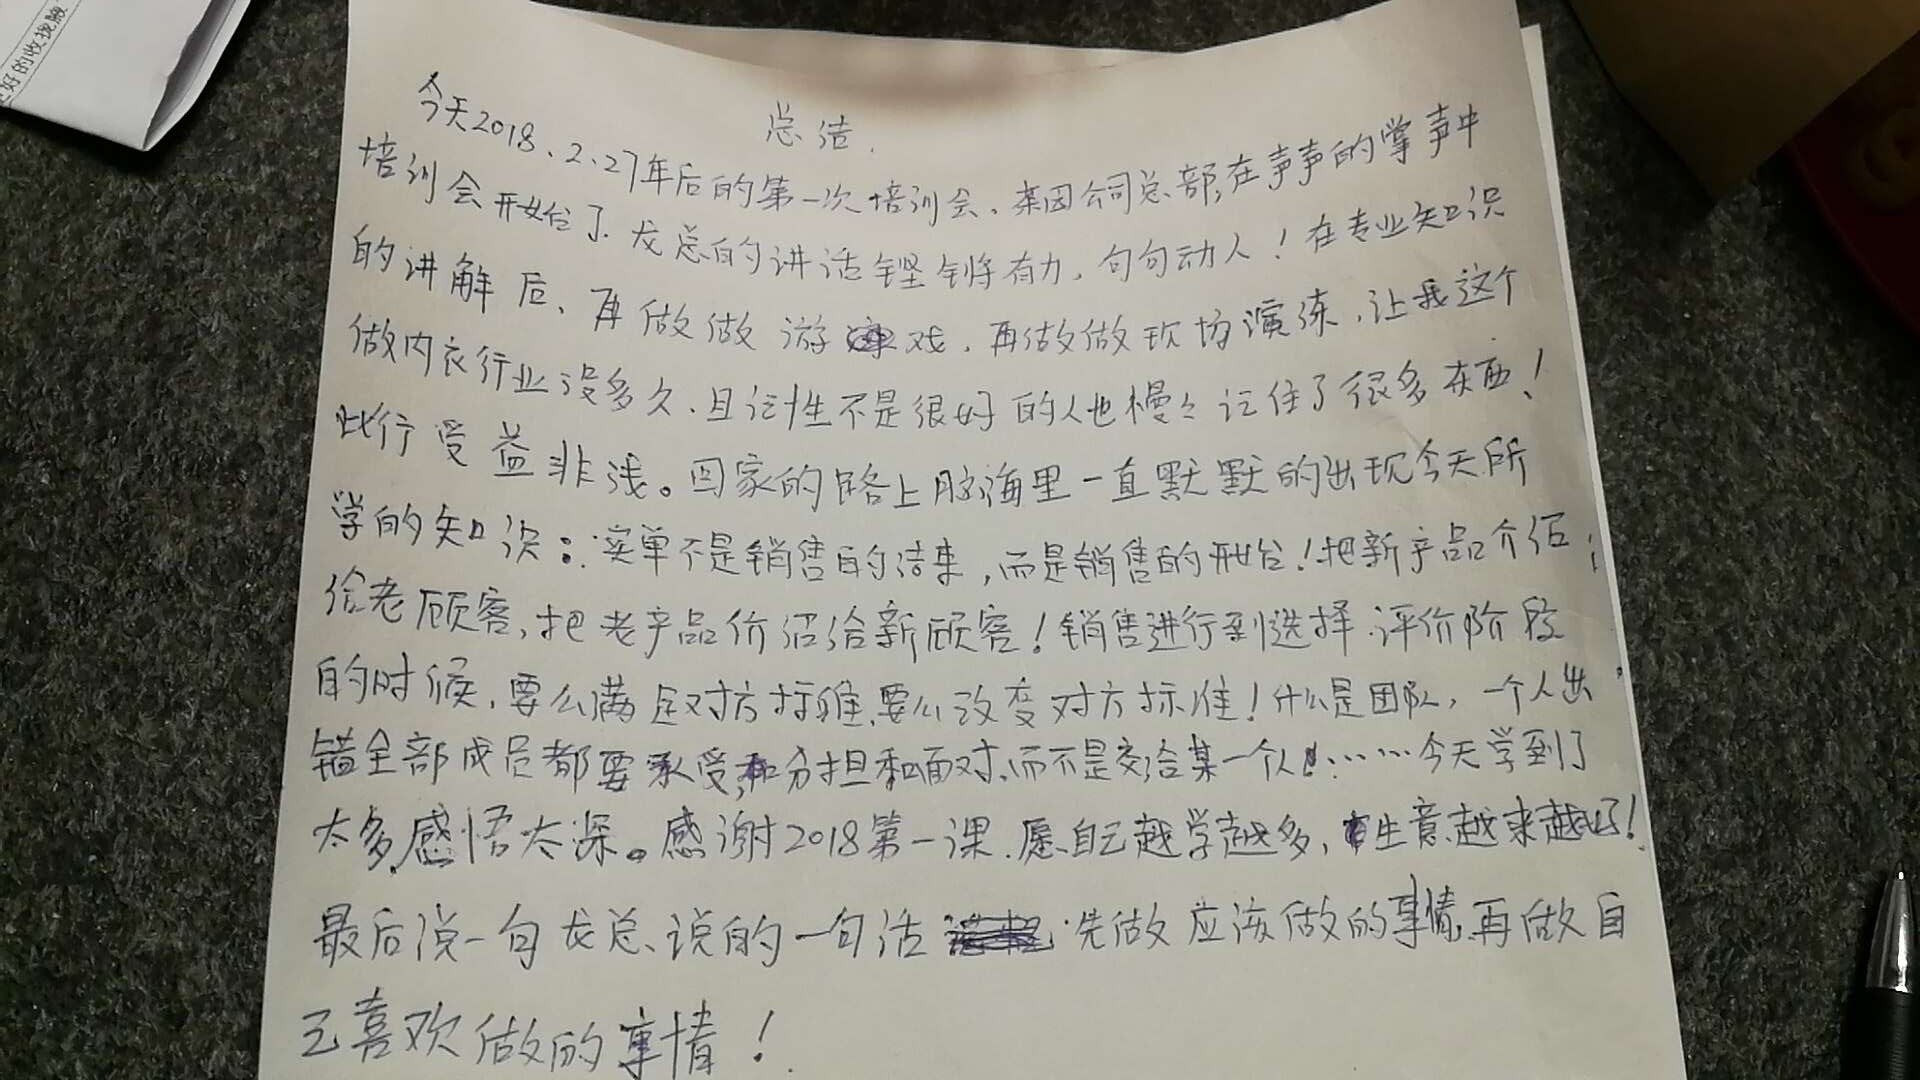 好的收拢腋
总结.
今天2018、2、27年后的第一次培训会、菜园公司总部,在声声的掌声中
培训会开始了.龙总的讲话铿锵有力,句句动人!在专业知识
的讲解后、再做做游戏,再做做现场演练,让我这个
做内衣行业没多久、且记性不是很好的人也慢々记住了很多东西!
此行受益非浅。回家的路上脑海里一直默默的出现今天所
学的知识:卖单不是销售的结束,而是销售的开始!把新产品介绍
给老顾客,把老产品价绍给新顾客!销售进行到选择.评价阶段
的时候,要么满足对方标准,要么改变对方标准!什么是团队,一个人出
错全部成员都要承受,和分担和面对,而不是交给某一个人!……今天学到了
太多,感悟太深。感谢2018第一课.愿自己越学越多,生意越来越好!
最后说一句龙总说的一句话 先做应该做的事情,再做自
己喜欢做的事情!